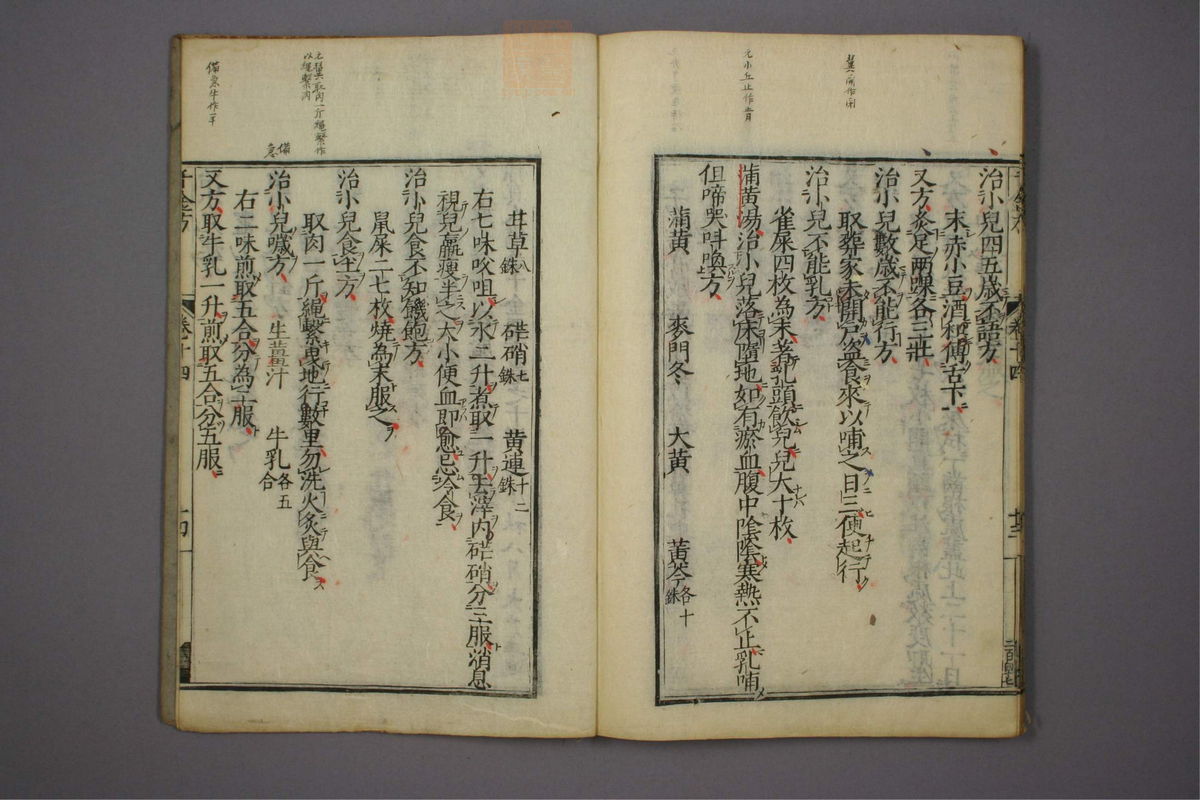 治小兒四五歲不語方
末赤小豆酒和傅舌下
又方灸足兩踝各三壯
治小兒數歲不能行方
取葬家未開戶盗食來以哺之日三便起行
治小兒不能乳方
雀屎四枚為末著乳頭飲兒兒大十枚
蒲黃湯治小兒落床墮地如有瘀血腹中陰陰寒熱不止乳哺
但啼哭叫喚方
蒲黃 麥門冬 大黃 黃芩各十銖
甘草八銖 硭硝七銖 黃連十二銖
右七味㕮咀以水二升煮取一升去滓內硭硝分三服消息
視兒羸瘦半之大小便血即愈忌冷食
治小兒食不知饑飽方
鼠屎二七枚燒為末服之
治小兒食土方
取肉一斤繩繫曳地行數里勿洗火炙與食
備急
治小兒噦方 生薑汁 牛乳各五合
右二味煎取五合分為二服
又方取牛乳一升煎取五合分五服
千金方 卷十四